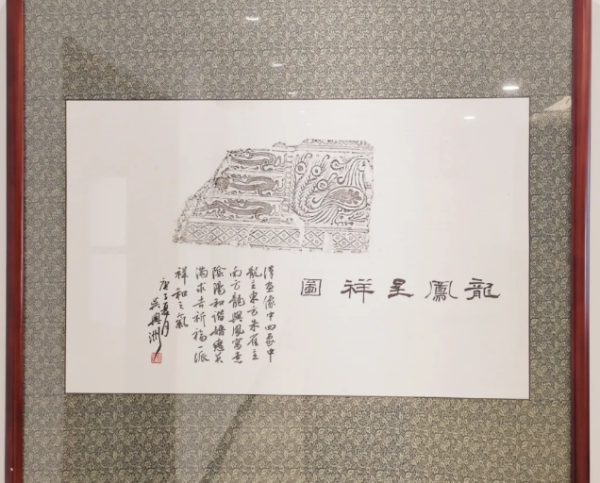 龍鳳呈祥圖
漢画像中四象中
龍主東方朱雀主
南方龍與鳳寓意
陰陽和谐婚戀美
满求吉祈福一派
祥和之氣
庚子夏月